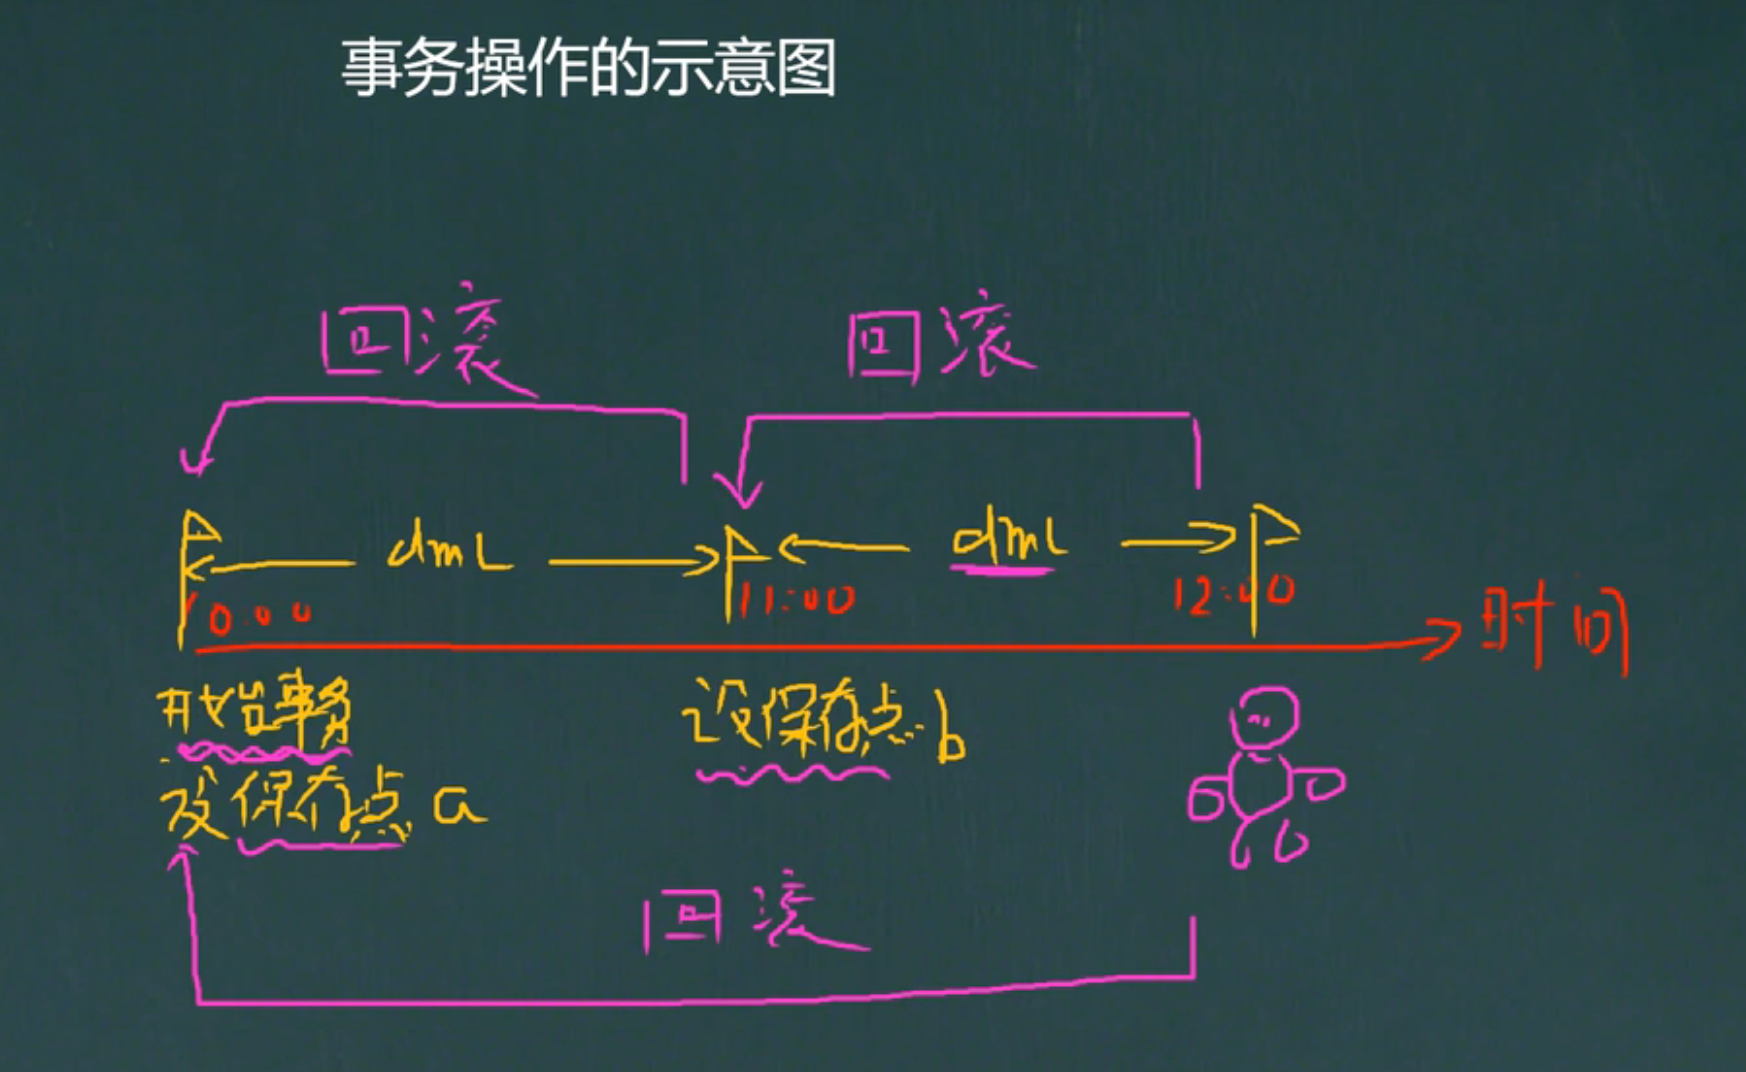 事务操作的示意图
回滚 回滚
dmL dmL
10:00 11:00 12:00 时间
开始事务 设保存点 b
设保存点 a
回滚